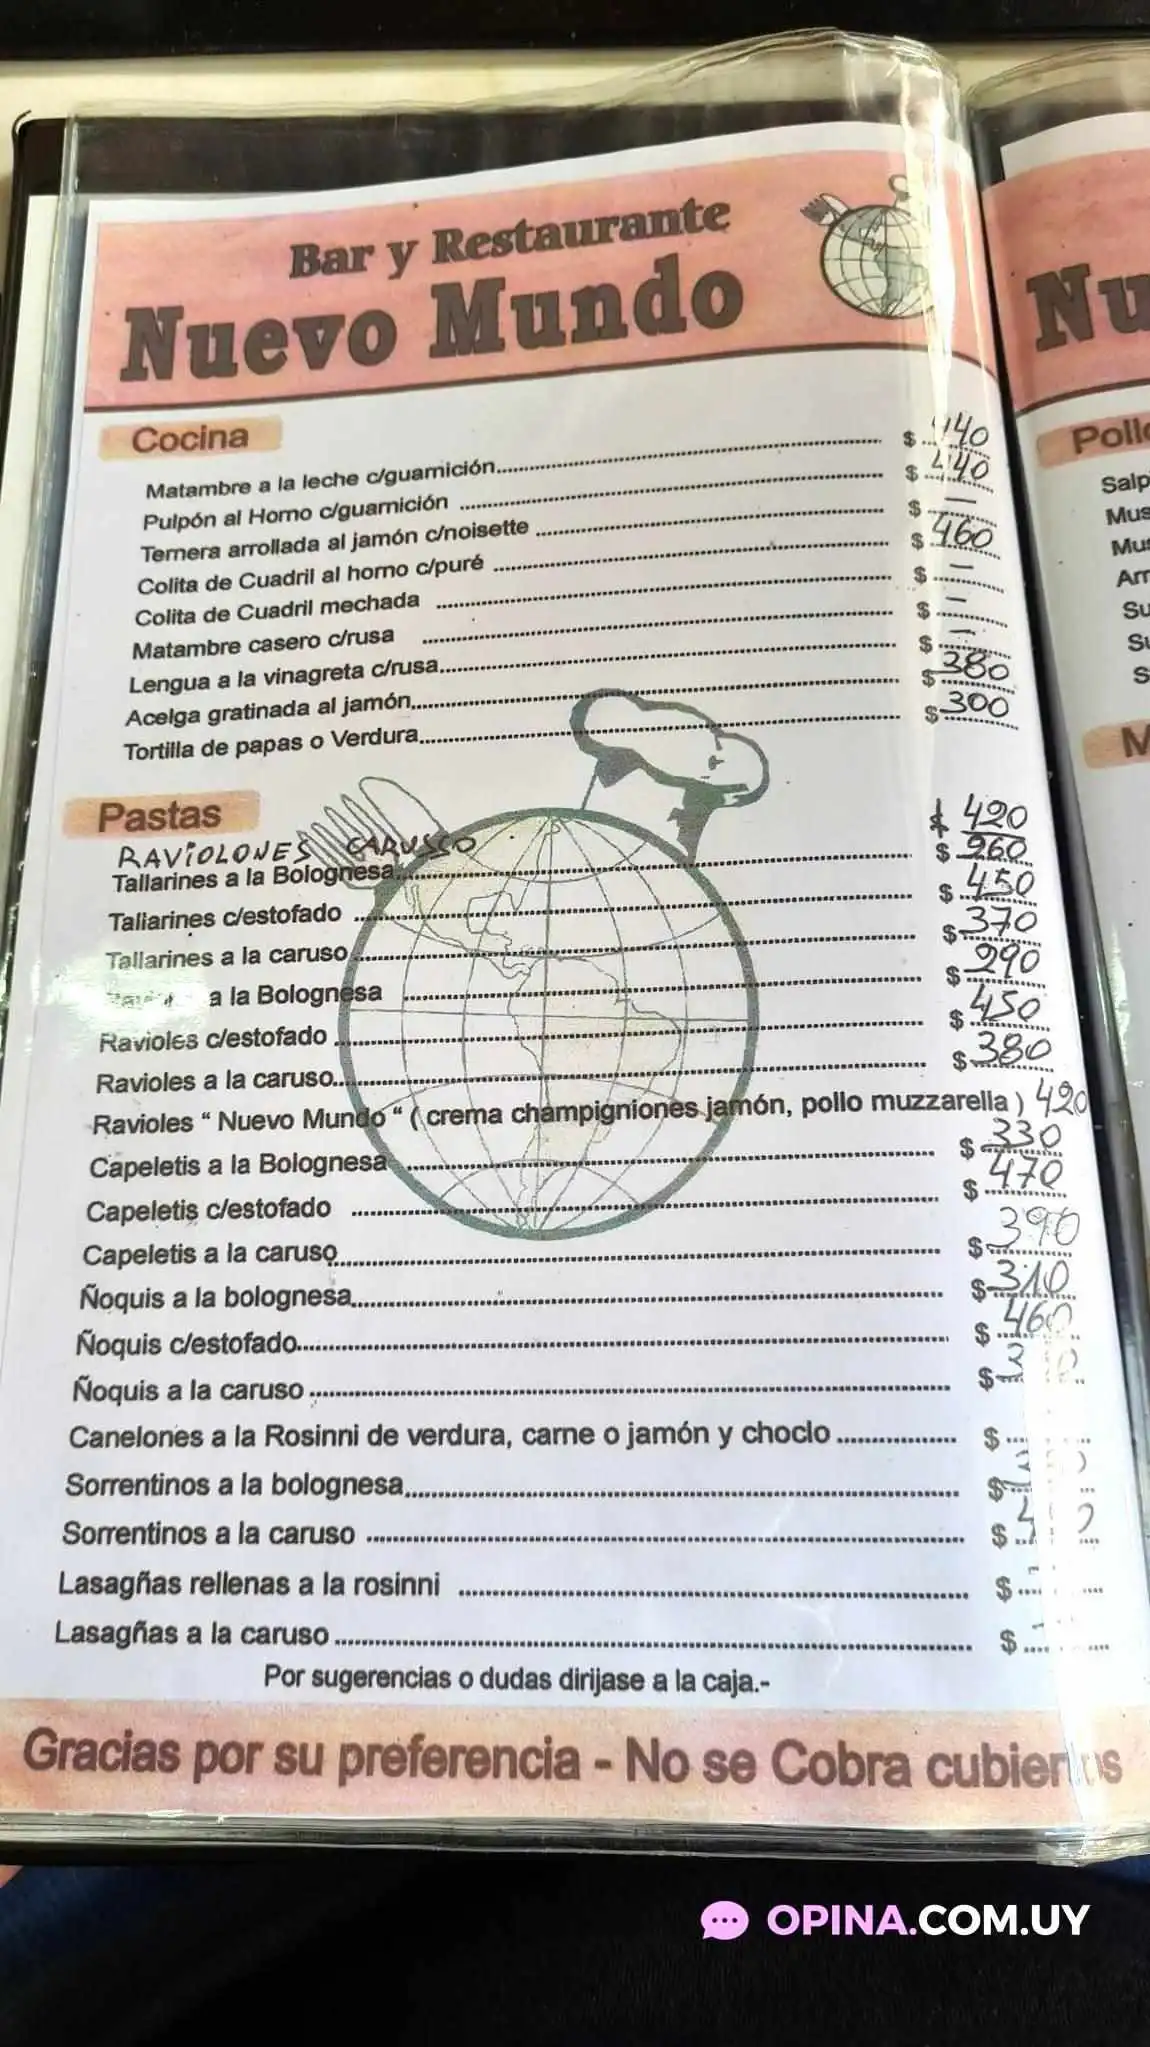 Bar y Restaurante
Nuevo Mundo
Cocina
Matambre a la leche c/guarnición $ 440
Pulpón al Horno c/guarnición $ 440
Ternera arrollada al jamón c/noisette $ —
Colita de Cuadril al horno c/puré $ 460
Colita de Cuadril mechada $ —
Matambre casero c/rusa $ —
Lengua a la vinagreta c/rusa $ —
Acelga gratinada al jamón $ 380
Tortilla de papas o Verdura $ 300
Pastas
RAVIOLONES CARUSSO $ 420
Tallarines a la Bolognesa $ 260
Tallarines c/estofado $ 450
Tallarines a la caruso $ 370
a la Bolognesa $ 290
Ravioles c/estofado $ 450
Ravioles a la caruso $ 380
Ravioles “ Nuevo Mundo “ ( crema champigniones jamón, pollo muzzarella ) 420
Capeletis a la Bolognesa $ 330
Capeletis c/estofado $ 470
Capeletis a la caruso $ 390
Ñoquis a la bolognesa $ 310
Ñoquis c/estofado $ 460
Ñoquis a la caruso $
Canelones a la Rosinni de verdura, carne o jamón y choclo $
Sorrentinos a la bolognesa $
Sorrentinos a la caruso $
Lasagñas rellenas a la rosinni $
Lasagñas a la caruso $
Por sugerencias o dudas dirijase a la caja.-
Gracias por su preferencia - No se Cobra cubiertos
Nu
Poll
Salp
Mus
Mu
Arr
Su
Su
S
M
OPINA.COM.UY